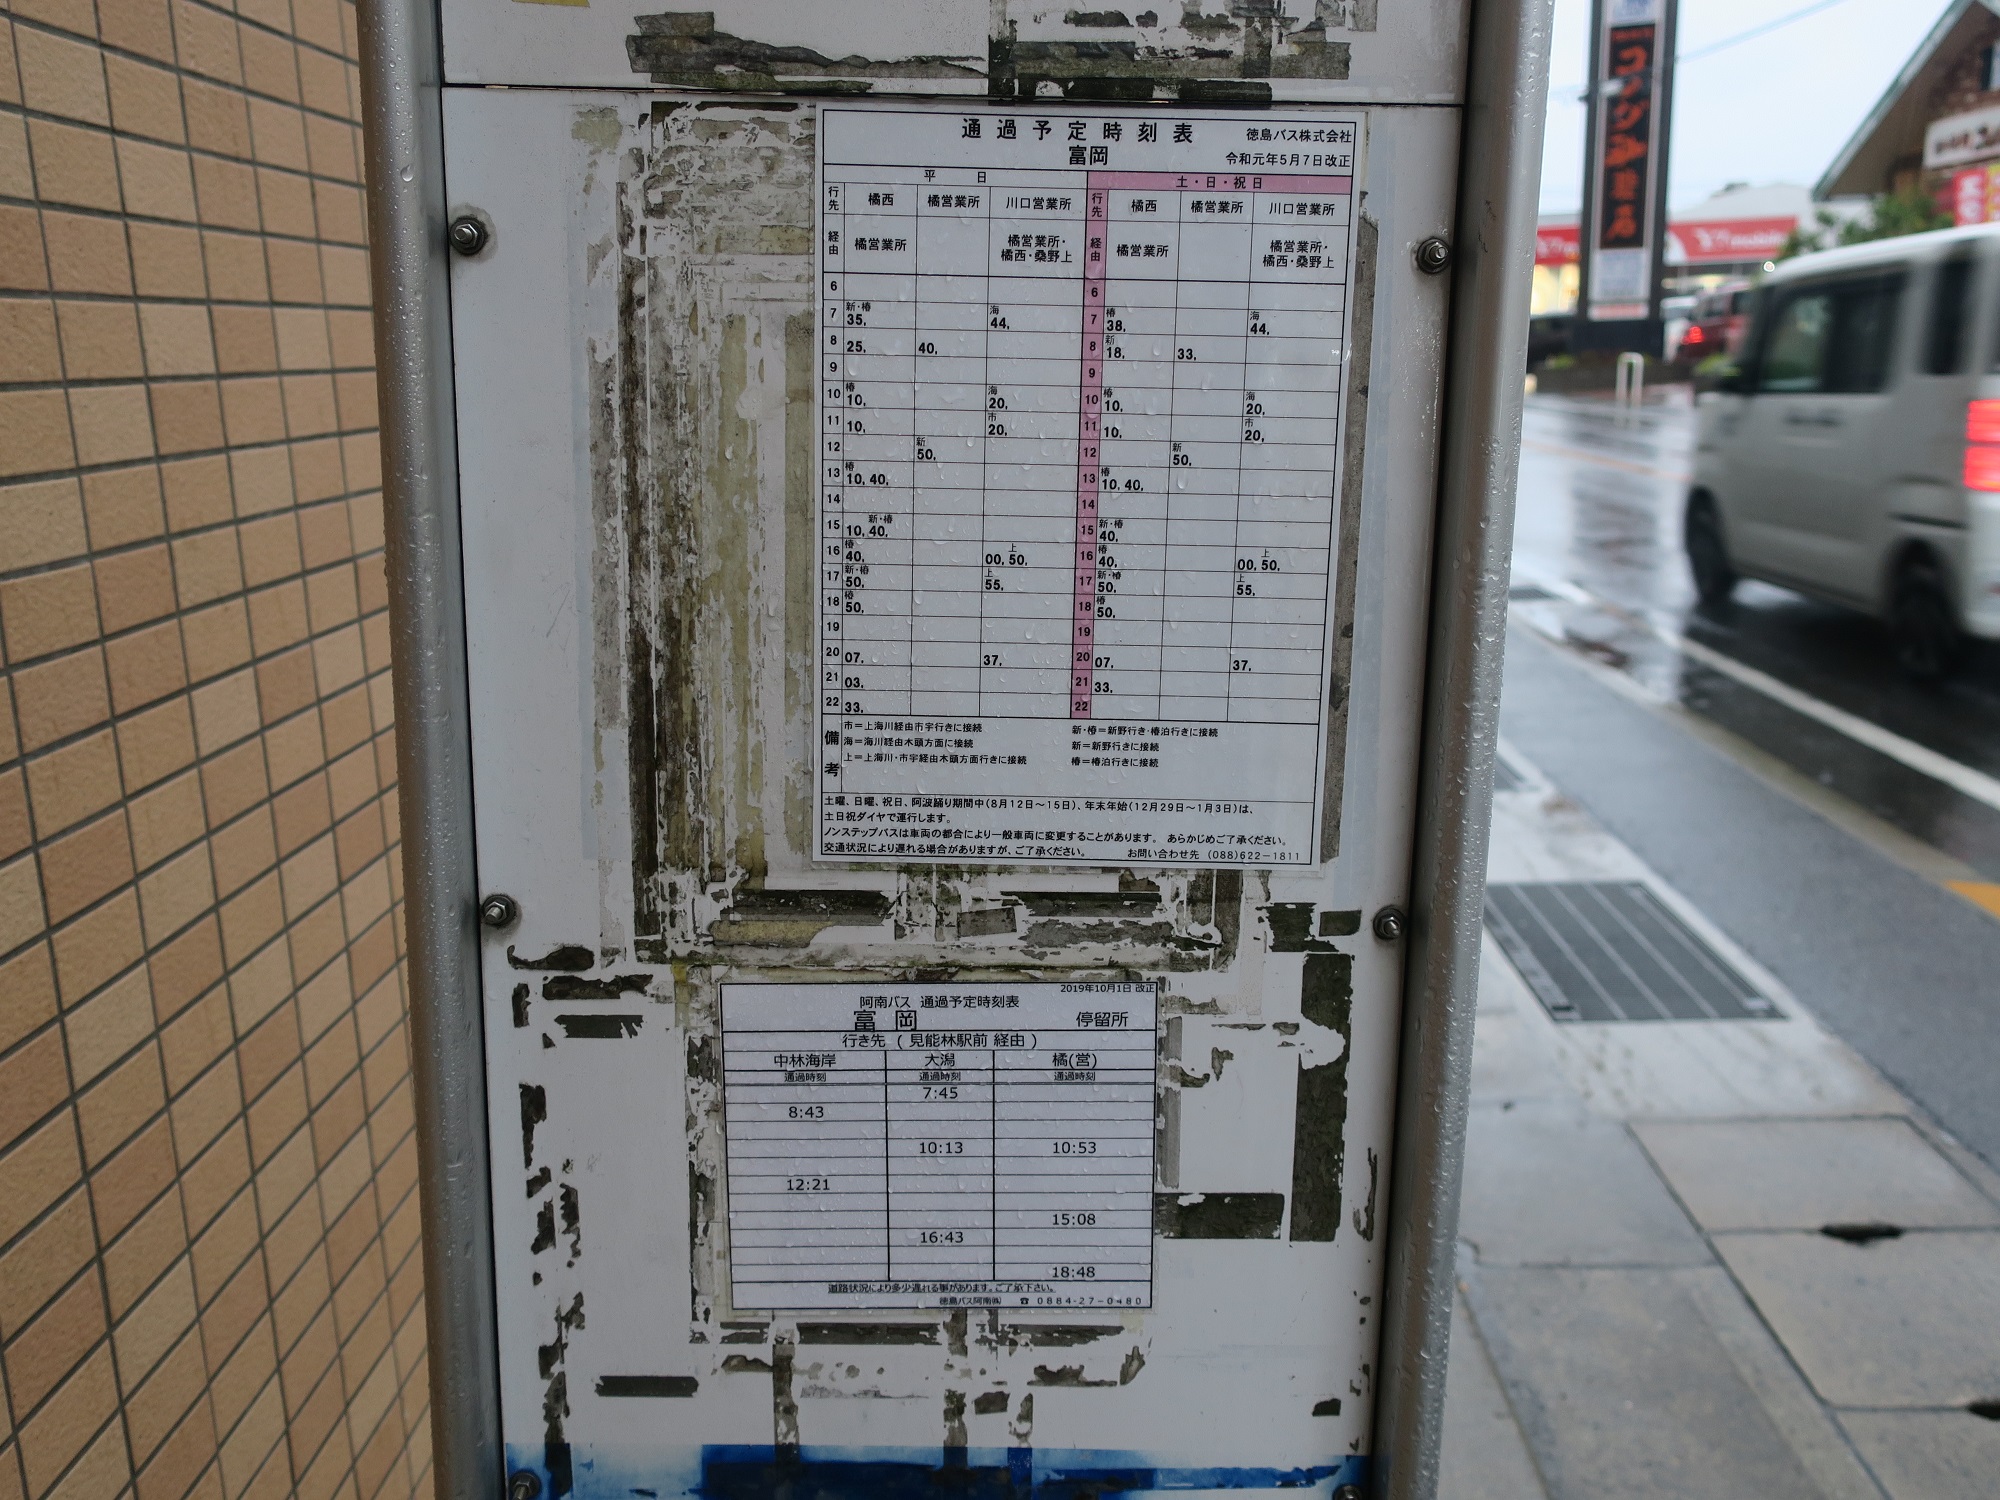 通過予定時刻表
徳島バス株式会社
富岡
令和元年5月7日改正
平日 土・日・祝日
行先 橘西 橘営業所 川口営業所 行先 橘西 橘営業所 川口営業所
経由 橘営業所 橘営業所・橘西・桑野上 経由 橘営業所 橘営業所・橘西・桑野上
6 6
7 新・椿 35, 海 44, 7 椿 38, 海 44,
8 25, 40, 8 新 18, 33,
9 9
10 椿 10, 海 20, 10 椿 10, 海 20,
11 10, 市 20, 11 10, 市 20,
12 新 50, 12 新 50,
13 椿 10, 40, 13 椿 10, 40,
14 14
15 10, 新・椿 40, 15 新・椿 40,
16 椿 40, 00, 上 50, 16 椿 40, 00, 上 50,
17 新・椿 50, 上 55, 17 新・椿 50, 上 55,
18 椿 50, 18 椿 50,
19 19
20 07, 37, 20 07, 37,
21 03, 21 33,
22 33, 22
備考
市=上海川経由市宇行きに接続 新・椿=新野行き・椿泊行きに接続
海=海川経由木頭方面に接続 新=新野行きに接続
上=上海川・市宇経由木頭方面行きに接続 椿=椿泊行きに接続
土曜、日曜、祝日、阿波踊り期間中(8月12日〜15日)、年末年始(12月29日〜1月3日)は、
土日祝ダイヤで運行します。
ノンステップバスは車両の都合により一般車両に変更することがあります。 あらかじめご了承ください。
交通状況により遅れる場合がありますが、ご了承ください。 お問い合わせ先 (088)622-1811
2019年10月1日 改正
阿南バス 通過予定時刻表
富岡 停留所
行き先 (見能林駅前 経由)
中林海岸 大潟 橘(営)
通過時刻 通過時刻 通過時刻
7:45
8:43
10:13 10:53
12:21
15:08
16:43
18:48
道路状況により多少遅れる事があります。ご了承下さい。
徳島バス阿南㈱ ☎ 0884-27-0480